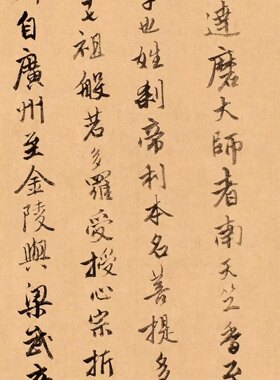 達磨大師者南天竺香至
子也姓刹帝利本名菩提多
七祖般若多羅受授心宗折
自廣州至金陵與梁武帝